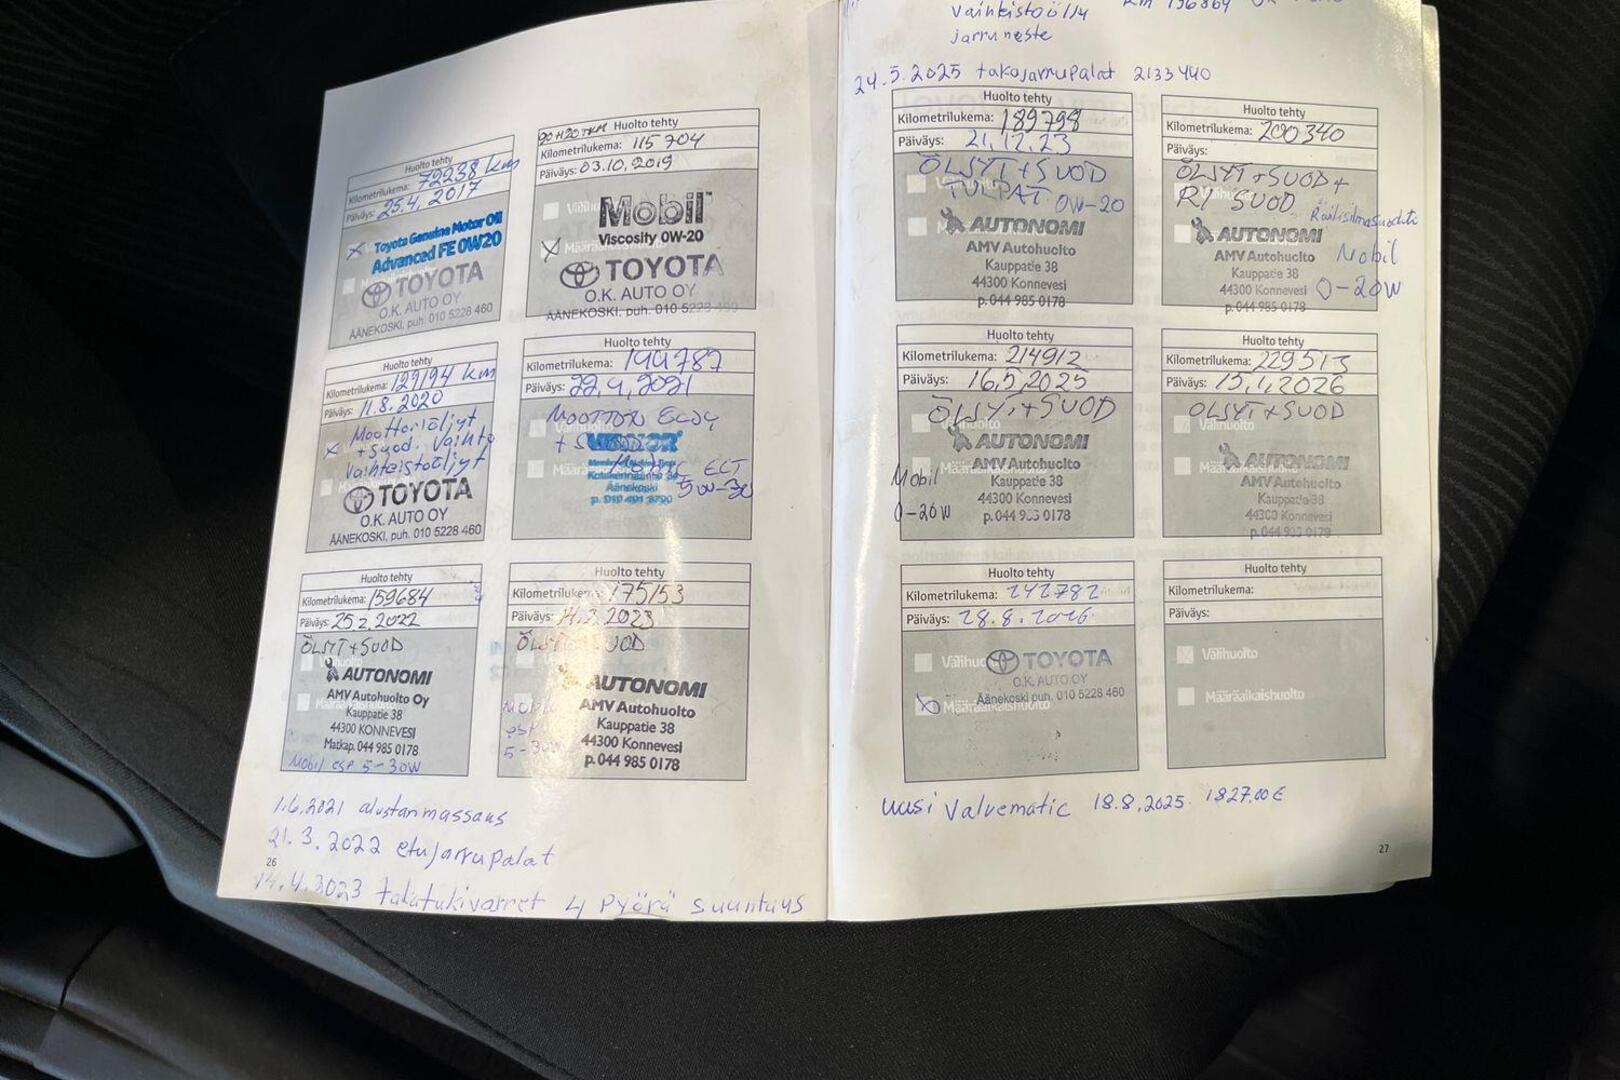 Huolto tehty
Kilometrilukema: 72238 km
Päiväys: 25.4. 2017
Toyota Genuine Motor Oil
Advanced FE 0W20
TOYOTA
O.K. AUTO OY
ÄÄNEKOSKI, puh. 010 5228 460
90 H20 TKM Huolto tehty
Kilometrilukema: 115 704
Päiväys: 03.10.2019
Mobil
Viscosity 0W-20
TOYOTA
O.K. AUTO OY
ÄÄNEKOSKI, puh. 010 5228 460
Huolto tehty
Kilometrilukema: 129194 km
Päiväys: 11.8.2020
Moottoriöljyt
+ Suod. vaihto
Vaihteistoöljyt
TOYOTA
O.K. AUTO OY
ÄÄNEKOSKI, puh. 010 5228 460
Huolto tehty
Kilometrilukema: 144787
Päiväys: 22.4.2021
+
Äänekoski
5W-30
Huolto tehty
Kilometrilukema: 159684
Päiväys: 25.2.2022
ÖLJYT+SUOD
AUTONOMI
AMV Autohuolto Oy
Kauppatie 38
44300 KONNEVESI
Matkap. 044 985 0178
Mobil esp 5-30W
Huolto tehty
Kilometrilukema: 175153
Päiväys: 14.3.2023
ÖLJYT+SUOD
AUTONOMI
AMV Autohuolto
Kauppatie 38
44300 Konnevesi
p. 044 985 0178
Mobil
esp
5-30W
1.6.2021 alustanmassaus
21.3.2022 etujarrupalat
26
14.4.2023 takatukivarret 4 pyörä suuntaus
vaihteistoöljy km 196864
jarruneste
24.5.2025 takajarrupalat 2133440
Huolto tehty
Kilometrilukema: 189798
Päiväys: 21.12.23
ÖLJYT+SUOD
TULPAT 0W-20
AUTONOMI
AMV Autohuolto
Kauppatie 38
44300 Konnevesi
p. 044 985 0178
Huolto tehty
Kilometrilukema: 200340
Päiväys:
ÖLJYT+SUOD+
RI SUOD Raitisilmasuodatin
AUTONOMI
AMV Autohuolto
Kauppatie 38
44300 Konnevesi
p. 044 985 0178
Mobil
0-20W
Huolto tehty
Kilometrilukema: 214912
Päiväys: 16.5.2025
ÖLJYT+SUOD
AUTONOMI
AMV Autohuolto
Kauppatie 38
44300 Konnevesi
p. 044 985 0178
Mobil
0-20W
Huolto tehty
Kilometrilukema: 229513
Päiväys: 15.1.2026
ÖLJYT+SUOD
Välihuolto
AUTONOMI
AMV Autohuolto
Kauppatie 38
44300 Konnevesi
p. 044 985 0178
Huolto tehty
Kilometrilukema: 242782
Päiväys: 28.8.2026
Välihuolto
TOYOTA
O.K. AUTO OY
Äänekoski puh. 010 5228 460
Määräaikaishuolto
Huolto tehty
Kilometrilukema:
Päiväys:
Välihuolto
Määräaikaishuolto
uusi Valvematic 18.8.2025 1827,00 €
27